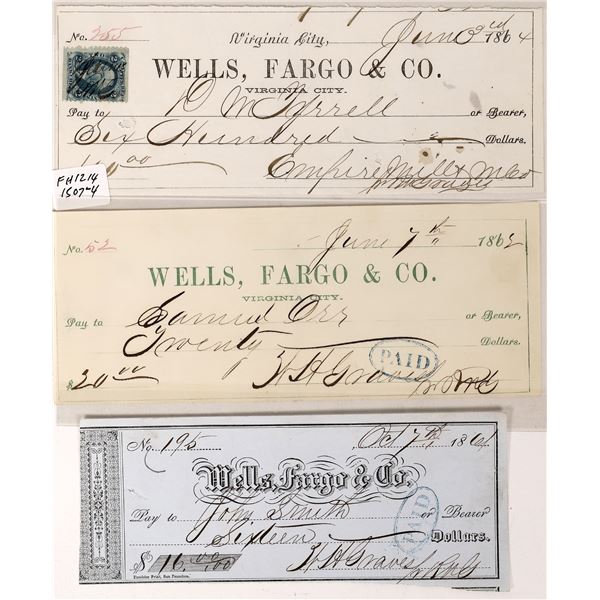 No. 255 Virginia City, June 3rd 1864
WELLS, FARGO & CO.
VIRGINIA CITY.
Pay to D McTyrrell or Bearer,
Six Hundred Dollars.
00.00 Empire Mill & M Co
FH1214
1507-4
No. 52 June 7th 1862
WELLS, FARGO & CO.
VIRGINIA CITY.
Pay to Samuel Orr or Bearer,
Twenty Dollars.
$20.00 H H Graves
PAID
No. 195 Oct 7th 1861
Wells, Fargo & Co.
Pay to John Smith or Bearer
Sixteen Dollars.
$ 16.00/100 H H Graves
PAID